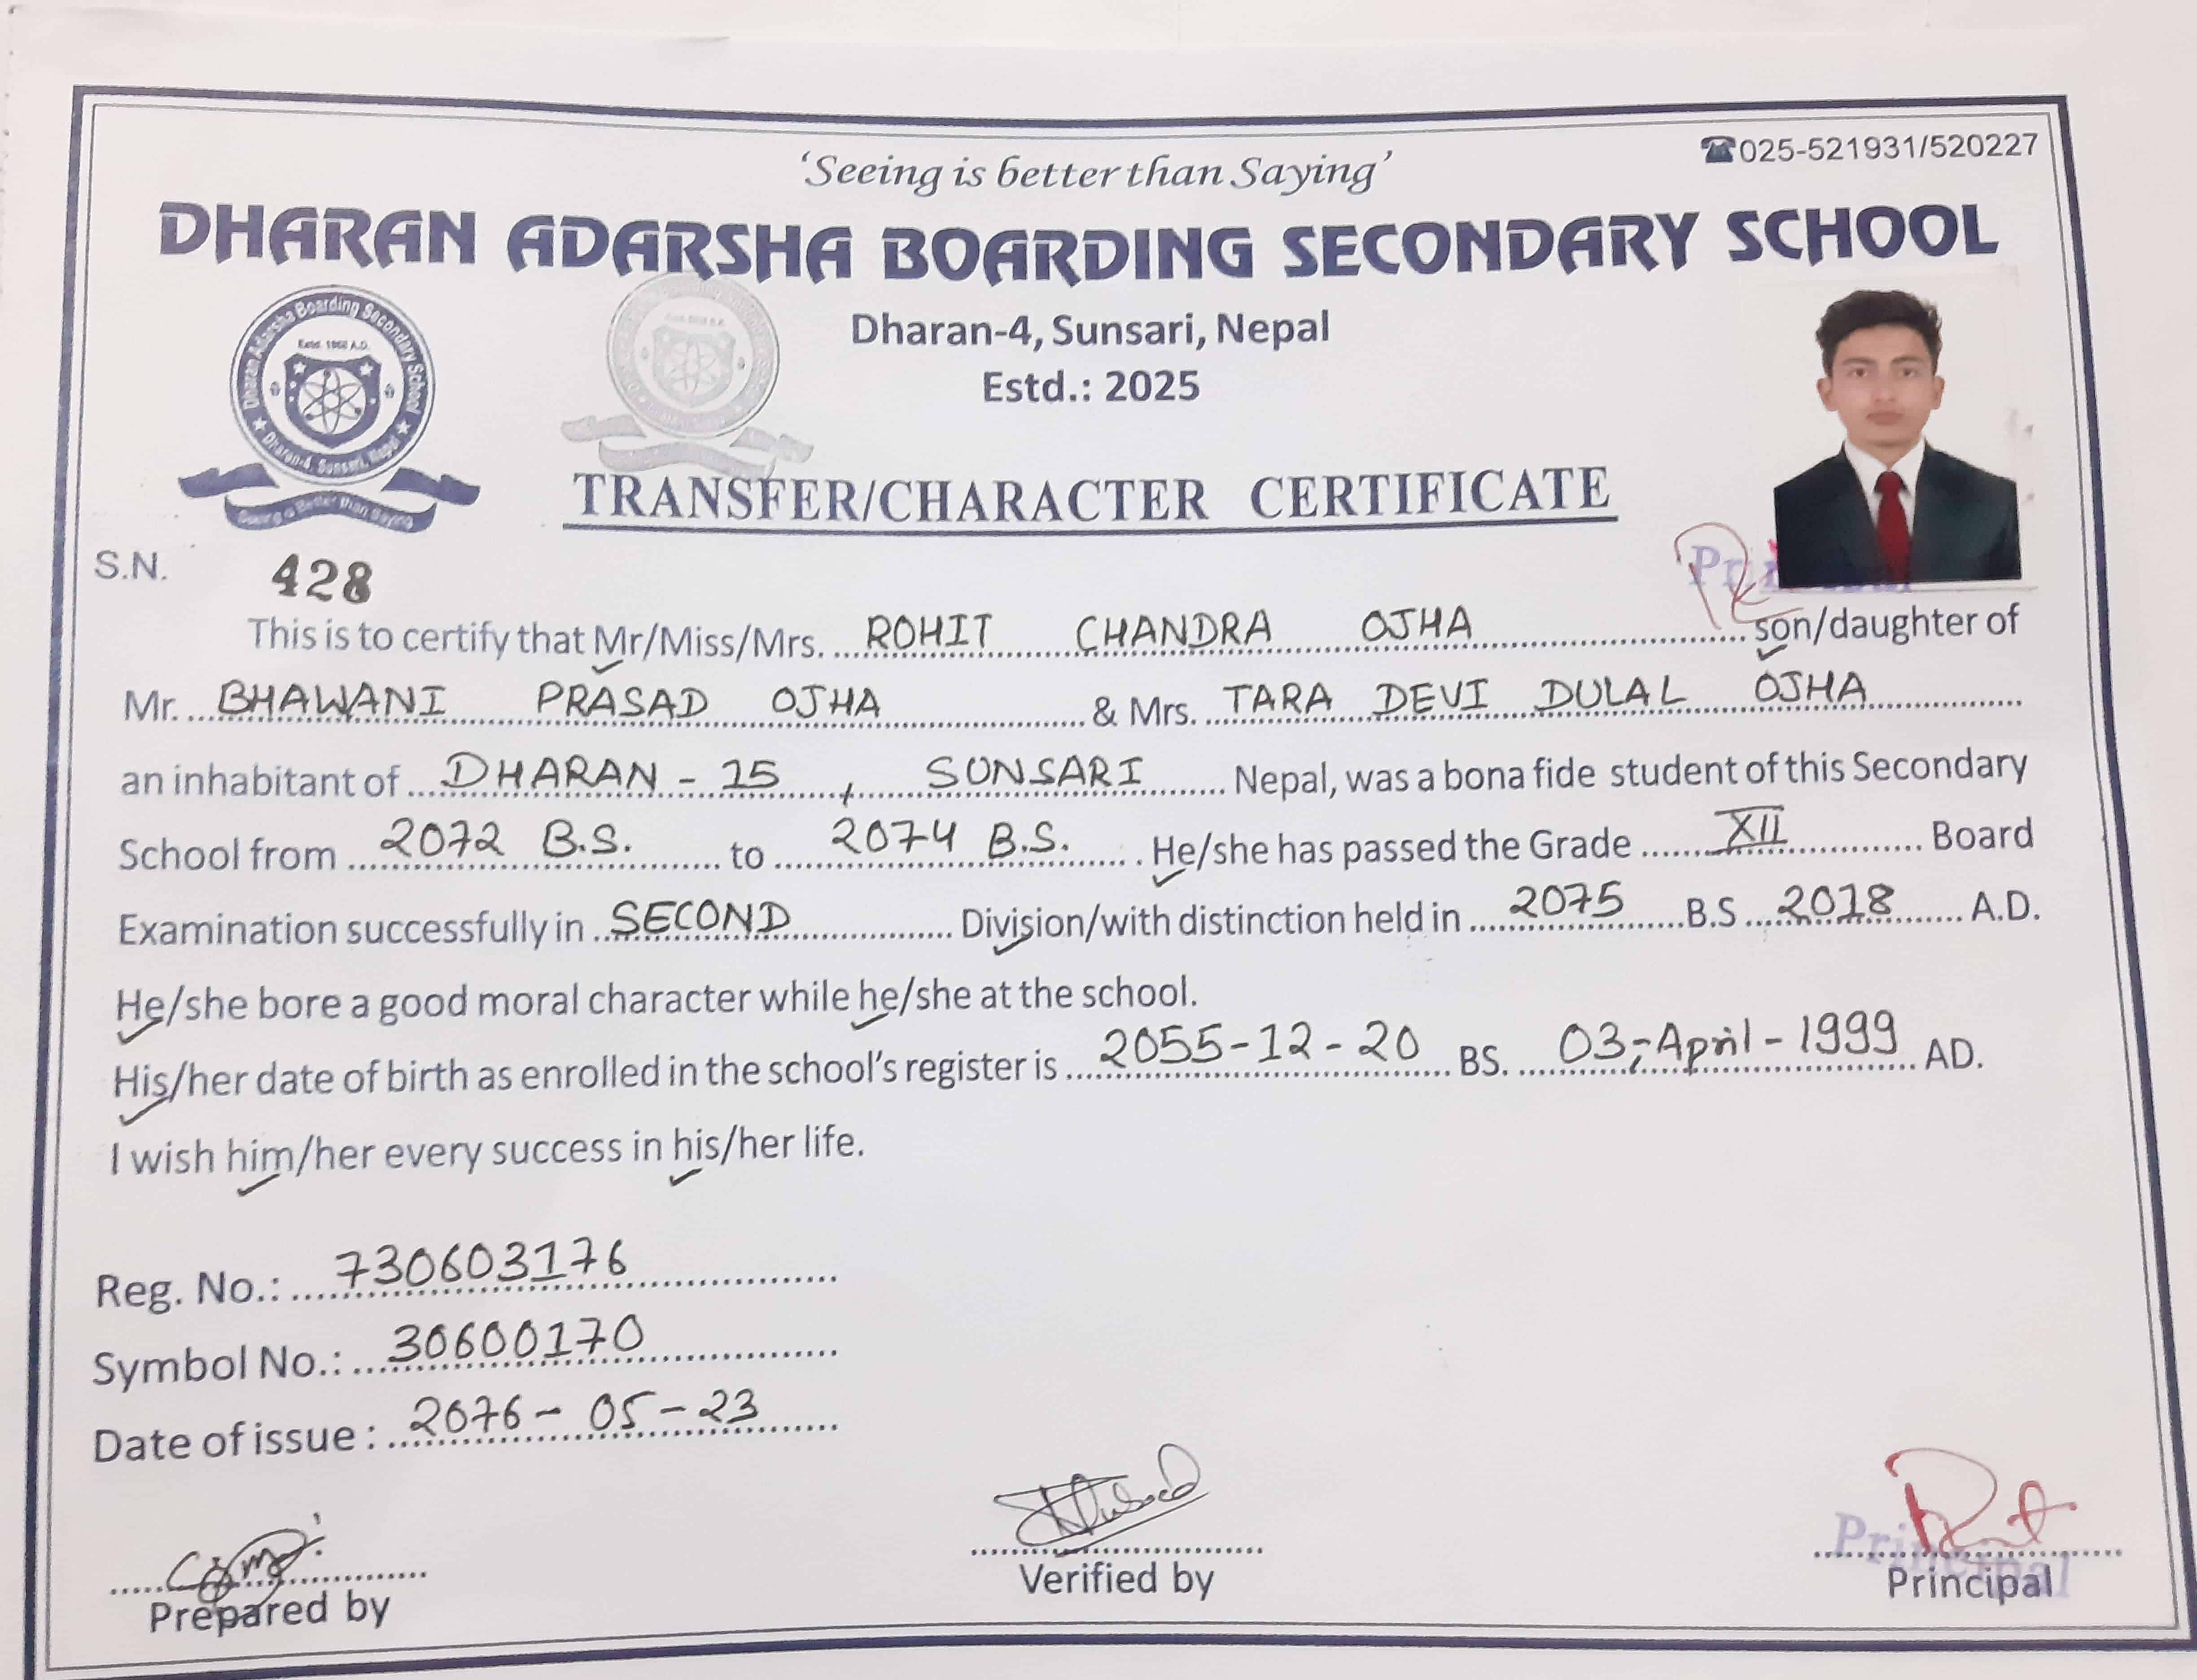 ☎025-521931/520227
'Seeing is better than Saying'
DHARAN ADARSHA BOARDING SECONDARY SCHOOL
Dharan Adarsha Boarding Secondary School
Estd. 1968 A.D.
Dharan-4, Sunsari, Nepal
Dharan-4, Sunsari, Nepal
Estd.: 2025
TRANSFER/CHARACTER CERTIFICATE
S.N. 428
This is to certify that Mr/Miss/Mrs. ROHIT CHANDRA OJHA son/daughter of
Mr. BHAWANI PRASAD OJHA & Mrs. TARA DEVI DULAL OJHA
an inhabitant of DHARAN - 15 , SUNSARI Nepal, was a bona fide student of this Secondary
School from 2072 B.S. to 2074 B.S. . He/she has passed the Grade XII Board
Examination successfully in SECOND Division/with distinction held in 2075 B.S 2018 A.D.
He/she bore a good moral character while he/she at the school.
His/her date of birth as enrolled in the school's register is 2055-12-20 BS. 03-April-1999 AD.
I wish him/her every success in his/her life.
Reg. No.: 730603176
Symbol No.: 30600170
Date of issue : 2076- 05-23
Prepared by
Verified by
Principal
Principal